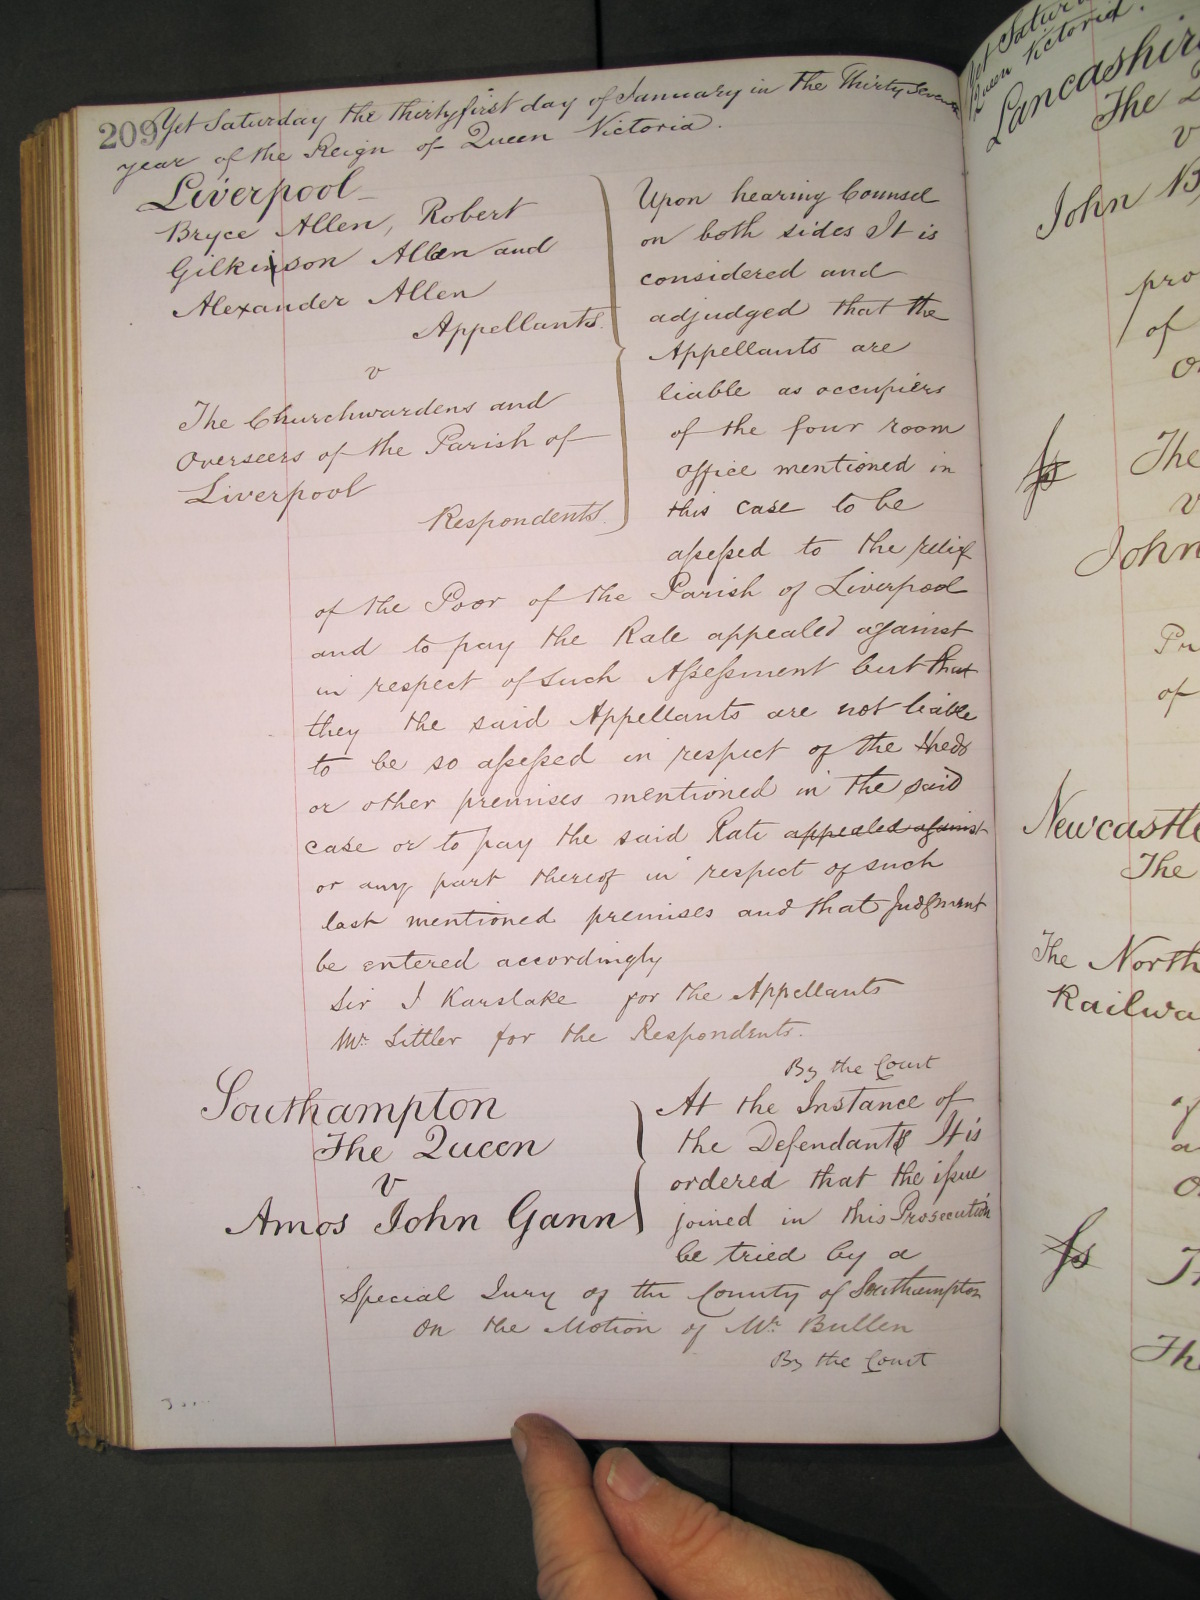 209 Yet Saturday the thirty first day of January in the Thirty Seventh
year of the Reign of Queen Victoria.
Liverpool
Bryce Allen, Robert
Gilkinson Allen and
Alexander Allen
Appellants.
v
The Churchwardens and
Overseers of the Parish of
Liverpool
Respondents.
Upon hearing Counsel
on both sides It is
considered and
adjudged that the
Appellants are
liable as occupiers
of the four room
office mentioned in
this case to be
assessed to the relief
of the Poor of the Parish of Liverpool
and to pay the Rate appealed against
in respect of such Assessment but that
they the said Appellants are not liable
to be so assessed in respect of the sheds
or other premises mentioned in the said
case or to pay the said Rate appealed against
or any part thereof in respect of such
last mentioned premises and that Judgment
be entered accordingly
Sir J Karslake for the Appellants
Mr. Littler for the Respondents.
By the Court
Southampton
The Queen
v
Amos John Gann
At the Instance of
the Defendant It is
ordered that the issue
joined in this Prosecution
be tried by a
Special Jury of the County of Southampton
On the Motion of Mr. Bullen
By the Court
Yet Satur
Queen Victoria.
Lancashire
The
v
John
pro
of
The
v
John
of
Newcastle
The
The North
Railwa
of
a
The